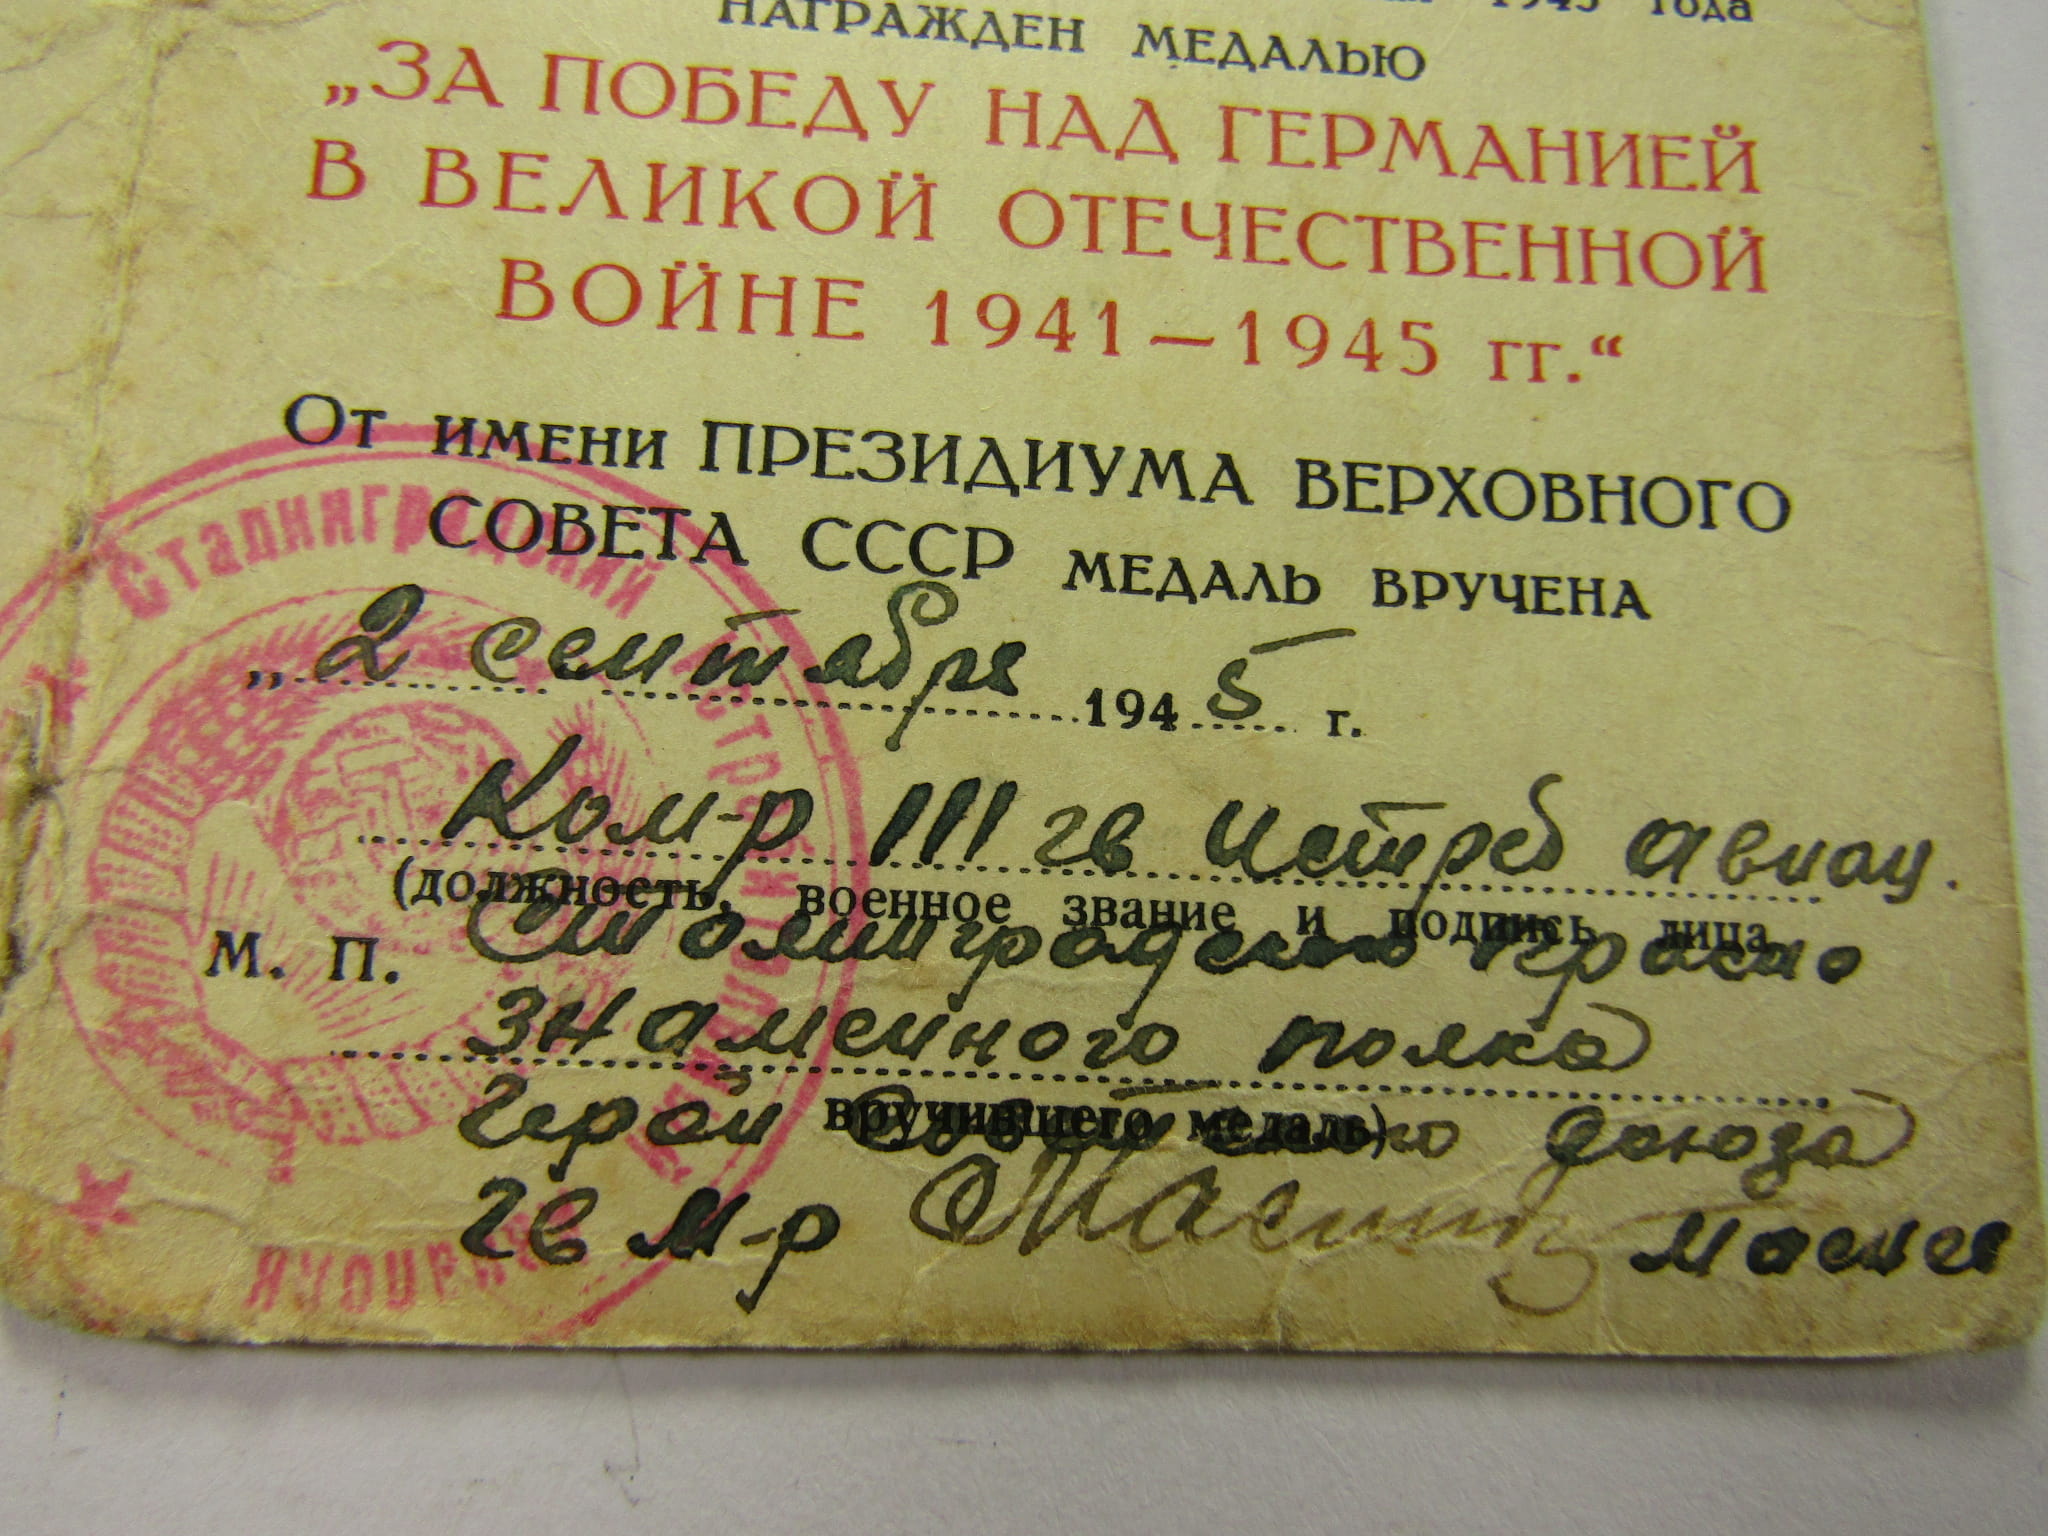 1945 года
НАГРАЖДЕН МЕДАЛЬЮ
„ЗА ПОБЕДУ НАД ГЕРМАНИЕЙ
В ВЕЛИКОЙ ОТЕЧЕСТВЕННОЙ
ВОЙНЕ 1941—1945 гг.“
От имени ПРЕЗИДИУМА ВЕРХОВНОГО
СОВЕТА СССР МЕДАЛЬ ВРУЧЕНА
„2 сентября 1945 г.
Ком-р 111 гв Истреб авиац.
(должность, военное звание и подпись лица,
М. П. Сталинградского Красно
знаменного полка
вручившего медаль)
Герой Советского Союза
гв м-р
Сталинградский Истр